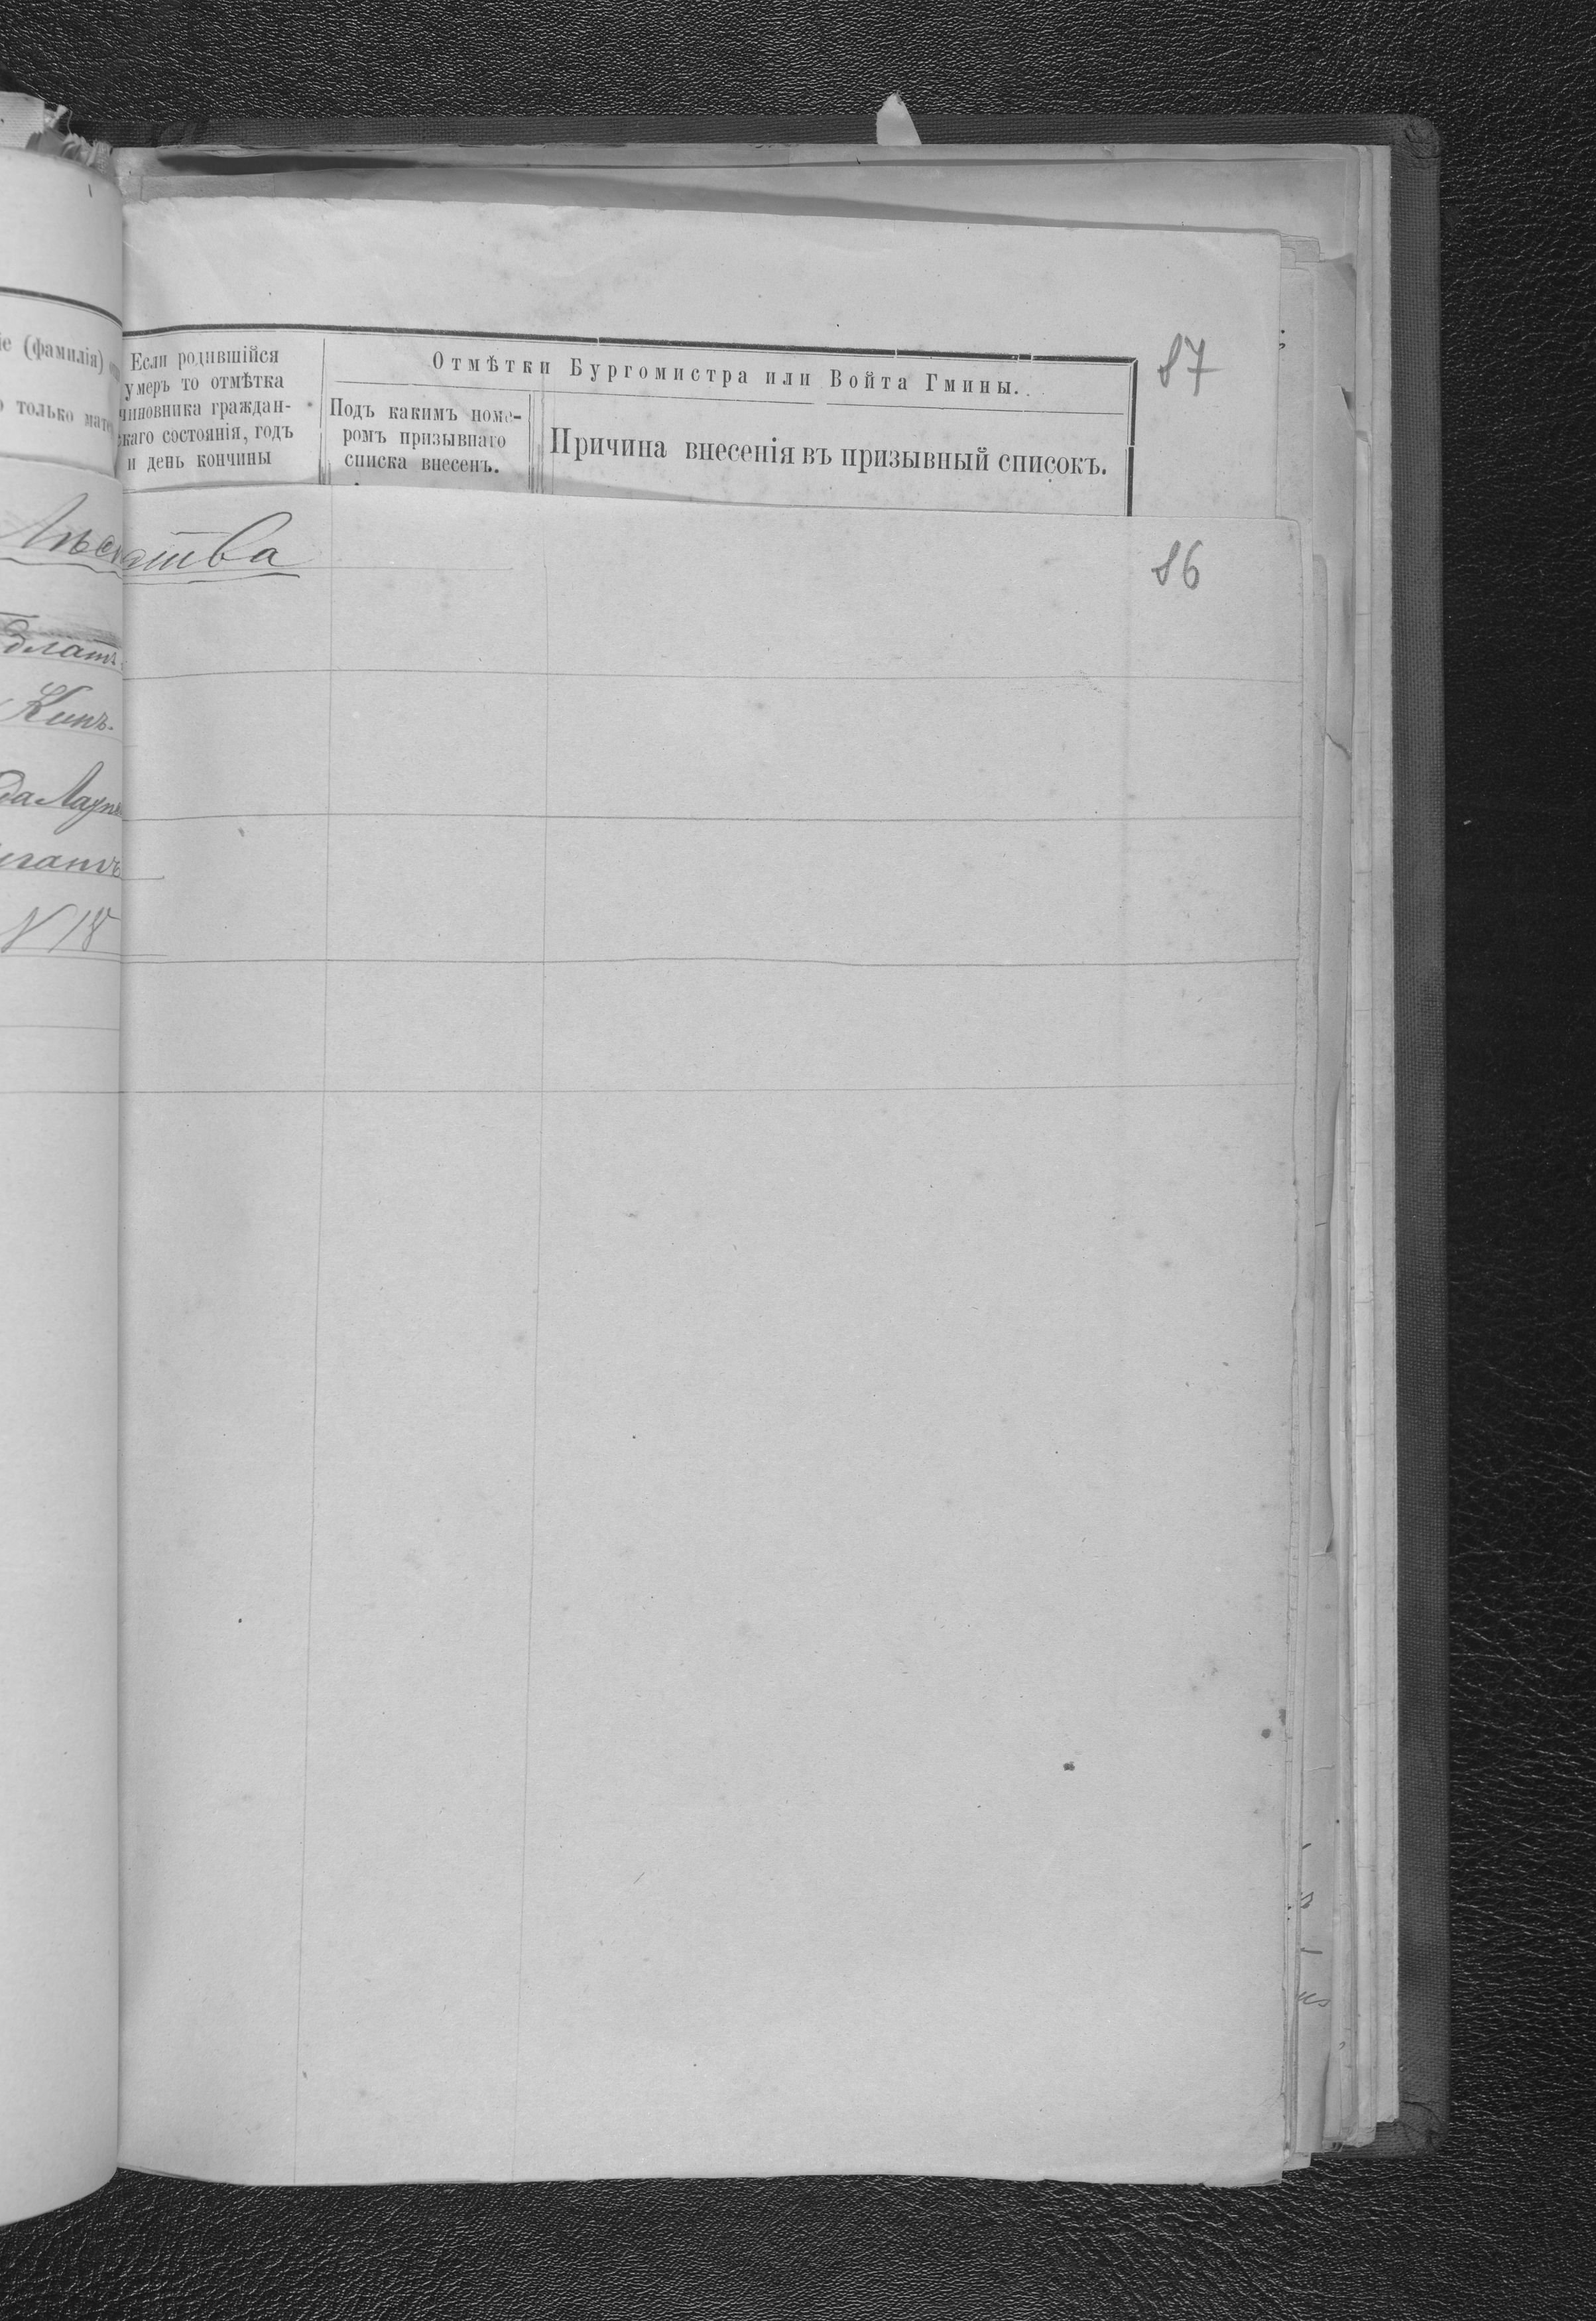 іе (фамилія)
только мате
Если родившійся
умеръ то отмѣтка
чиновника граждан-
скаго состоянія, годъ
и день кончины
Отмѣтки Бургомистра или Войта Гмины.
Подъ какимъ номе-
ромъ призывнаго
списка внесенъ.
Причина внесенія въ призывный списокъ.
87
86
ства
Кипъ.
N 18